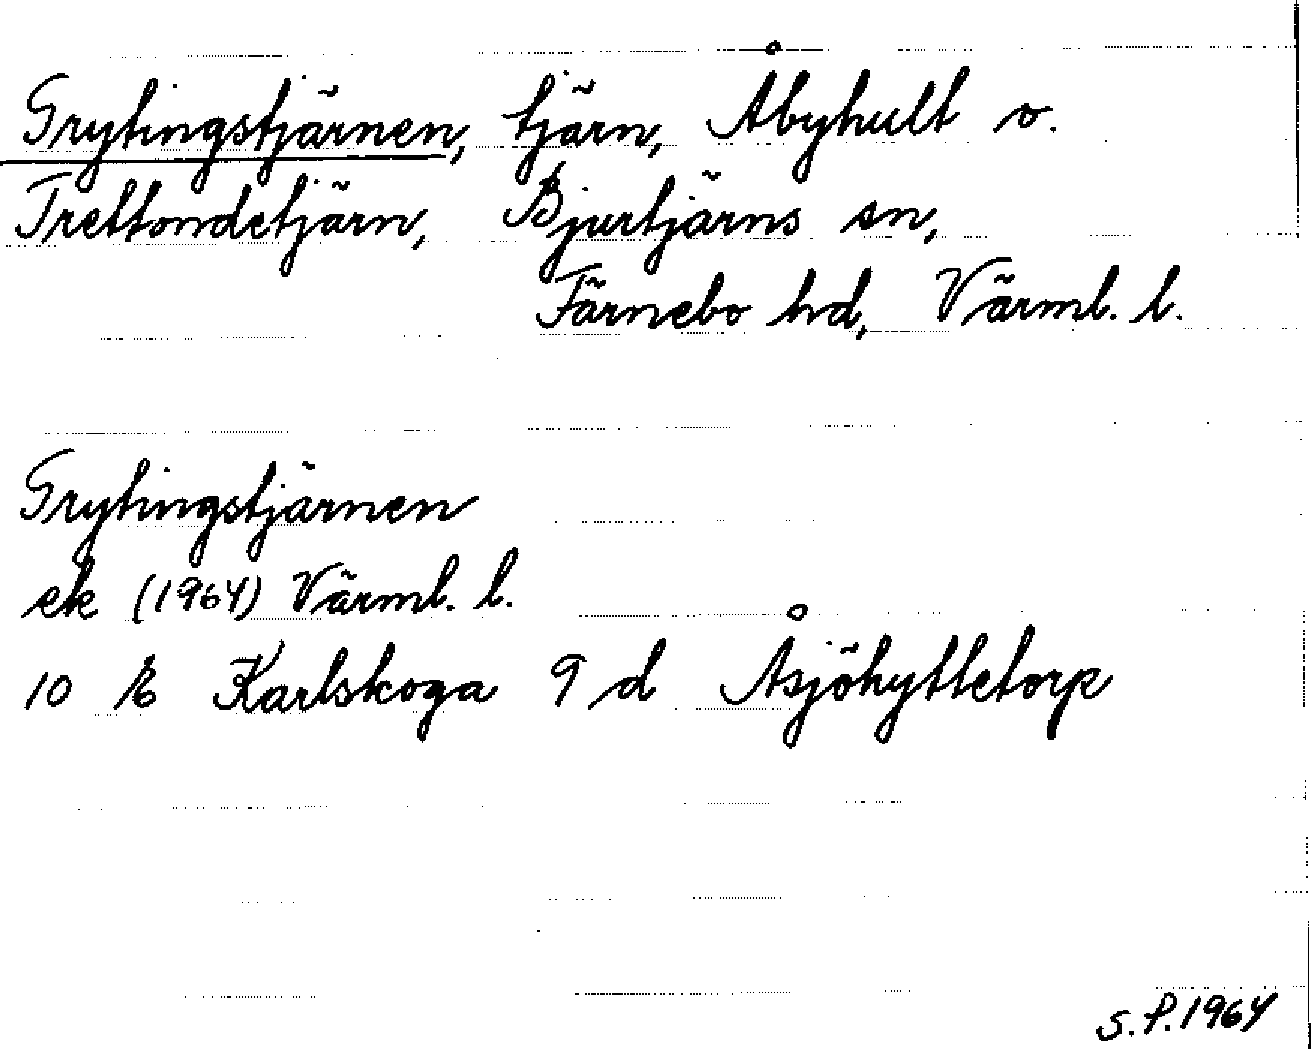 Grytingstjärnen, tjärn, Åbyhult o.
Trettondetjärn, Bjurtjärns sn,
Färnebo hd, Värml. l.
Grytingstjärnen
ek (1964) Värml. l.
10 E Karlskoga 9 d Åsjöhyttetorp
S.P. 1964